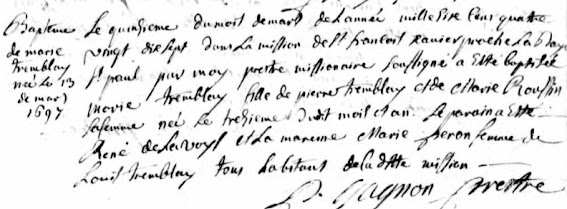 Bapteme
de marie
tremblay
née Le 13
de mars
1697
Le quinzieme du mois de mars de L'année mille Six Cens quatre
vingt dix sept dans La mission de St francois xavier proche La Baye
St paul par moy prestre missionaire soussigné a Esté baptisée
marie tremblay fille de pierre tremblay et de Marie Roussin
sa femme née Le treizieme dudit mois et an. Le parain a Esté
René de Lavoye et La mareine Marie Peron femme de
Louis tremblay tous habitant de la ditte mission
Gagnon Prestre